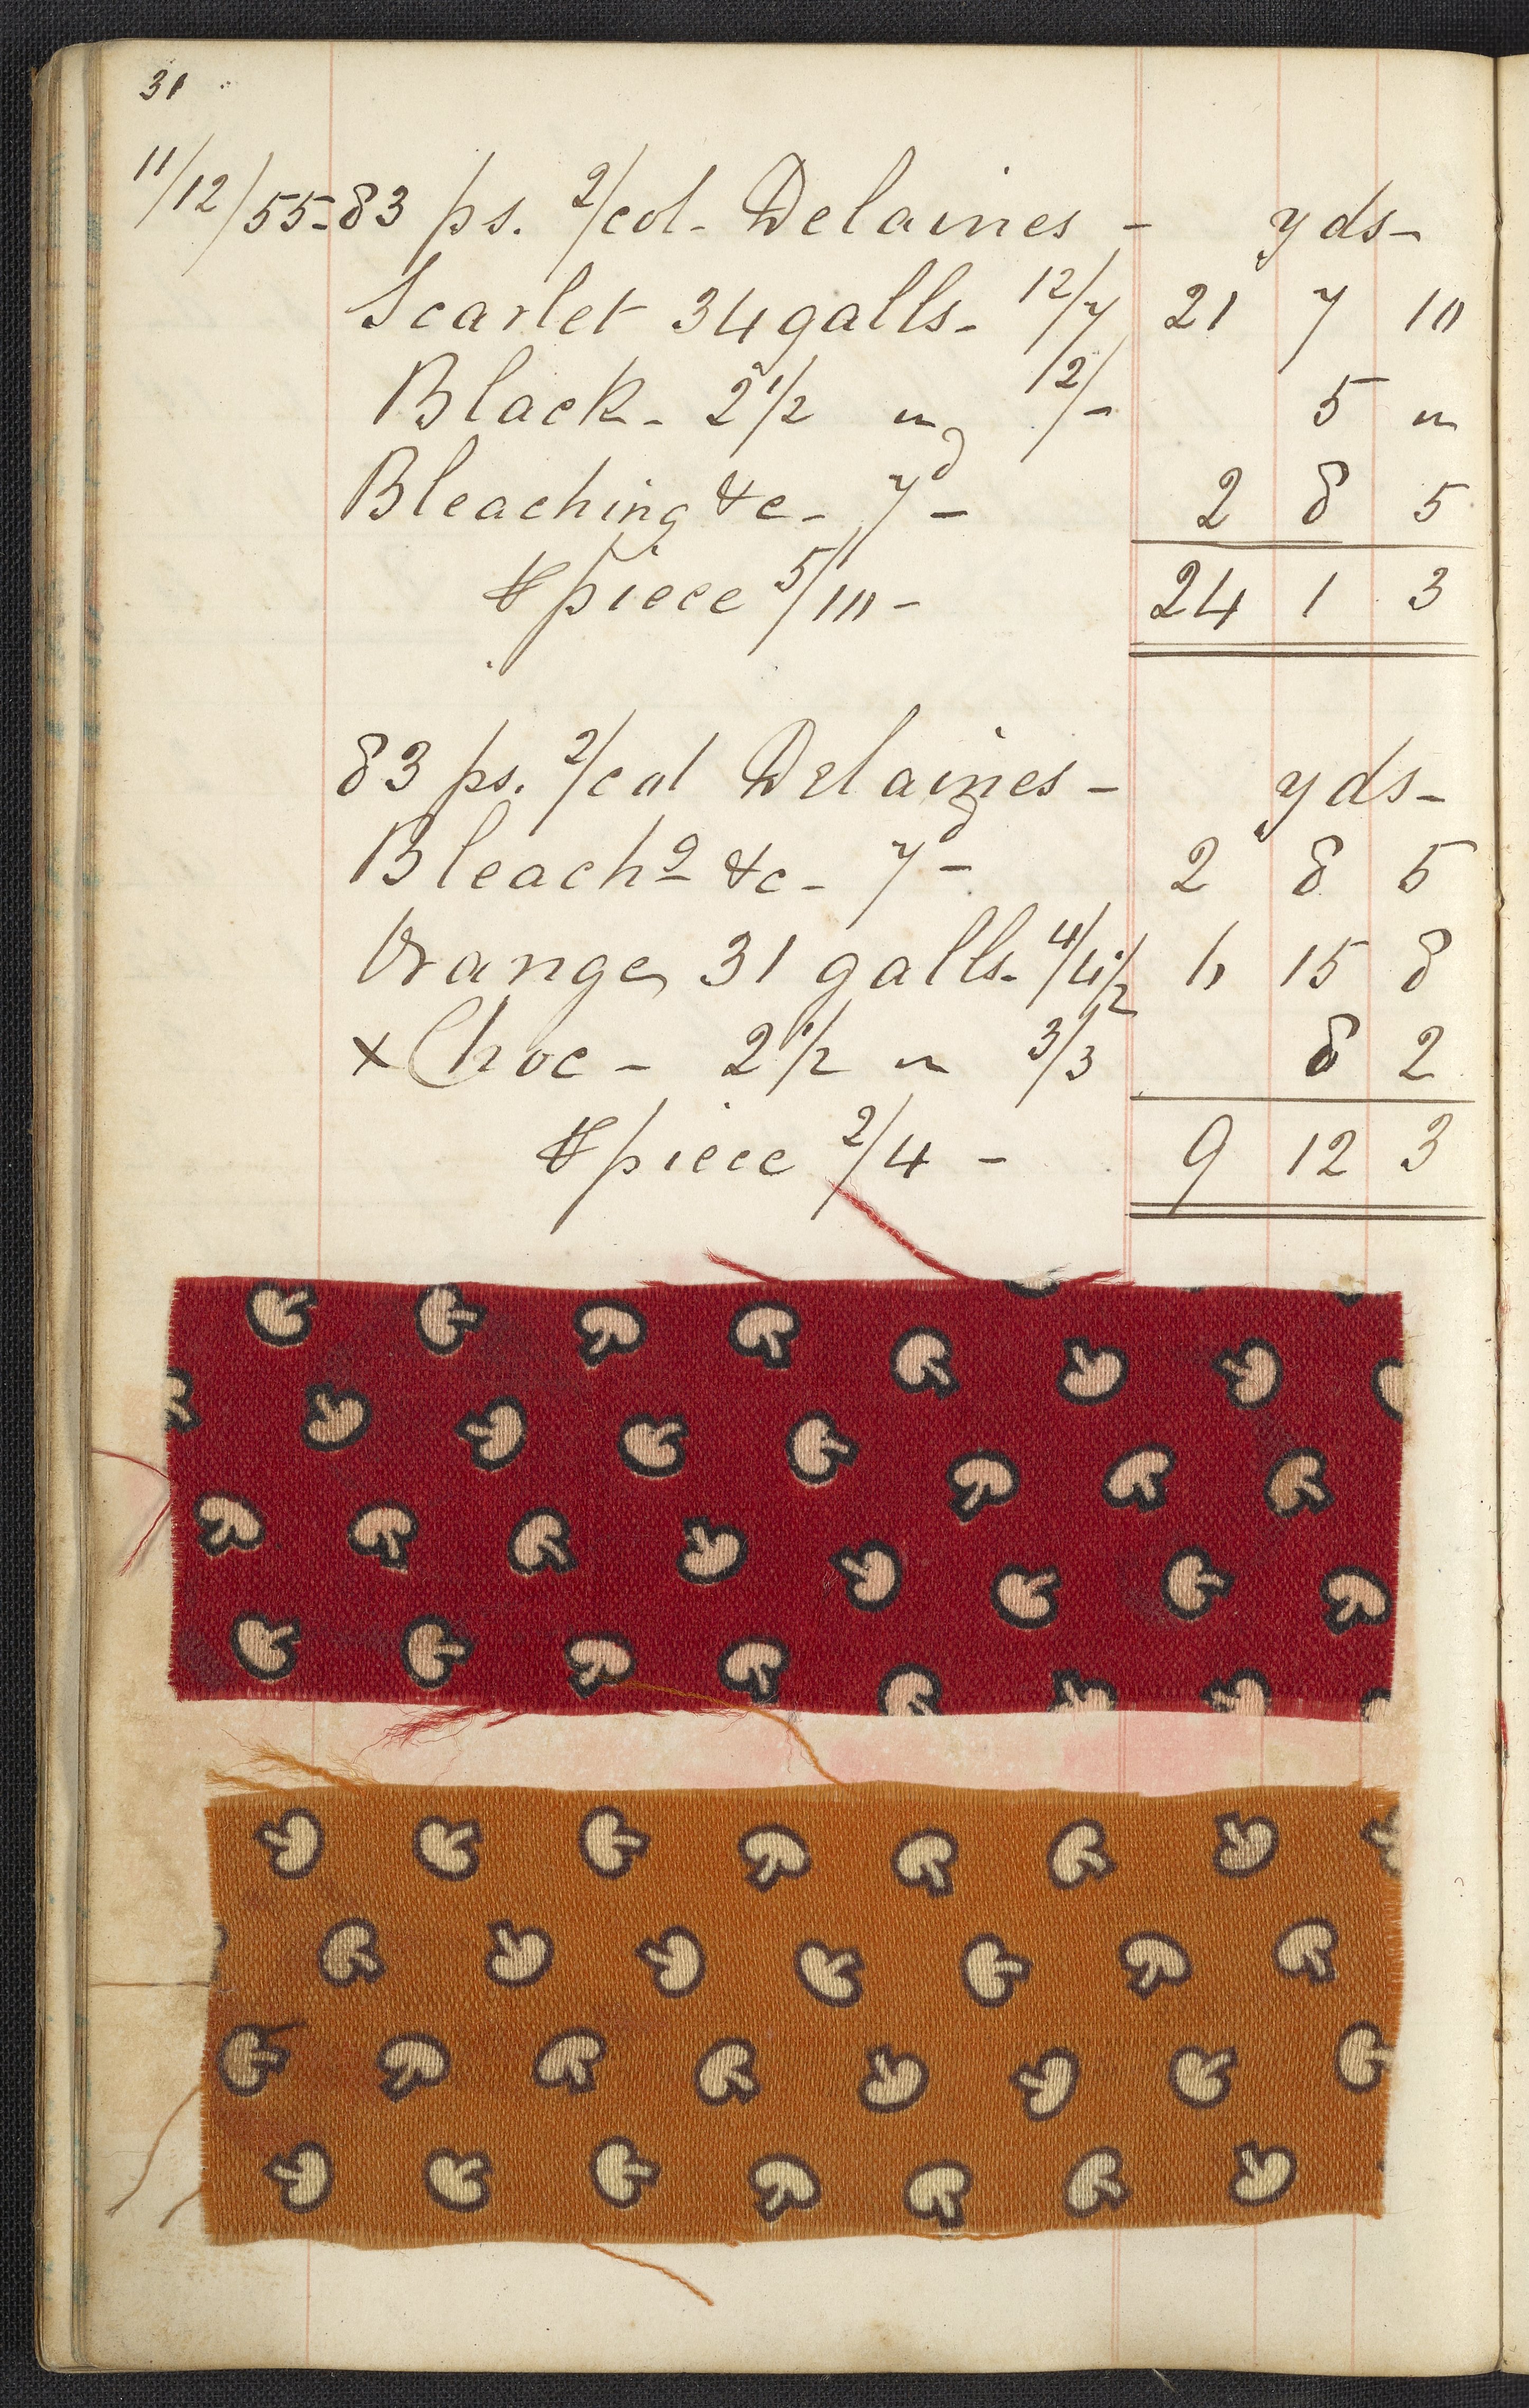 31
11/12/55 - 83 ps. 2/col. Delaines - yds -
Scarlet 34 galls - 12/7 21 7 10
Black - 2 1/2 " 2/- 5 "
Bleaching &c - 7d - 2 8 5
⅌ piece 5/10 - 24 1 3
83 ps. 2/col Delaines - yds -
Bleachg &c - 7d - 2 8 5
Orange 31 galls. 4/4 1/2 6 15 8
x Choc - 2 1/2 " 3/3 8 2
⅌ piece 2/4 - 9 12 3